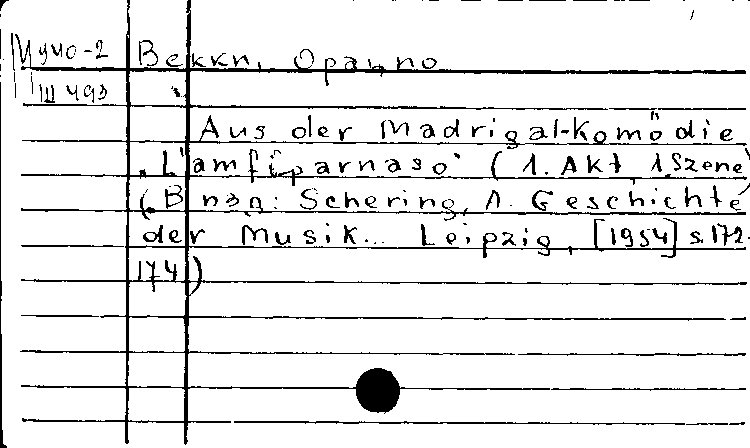 Векки, Орацио
Ш 493
Aus der Madrigal-Komödie
„L'amfiparnaso" (1. Akt, 1. Szene)
(В изд: Schering, A. Geschichte
der Musik... Leipzig, [1954] s. 172-
174)